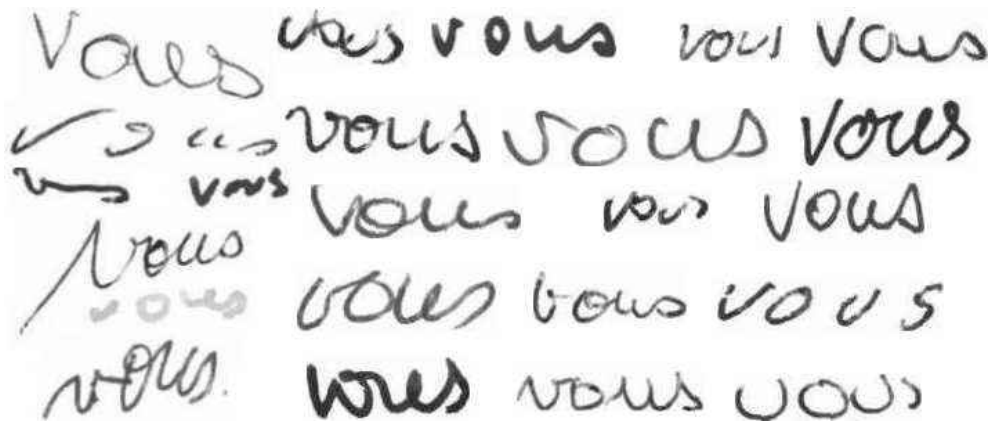 Vous vous vous vous Vous
vous vous vous vous
vous vous vous vous Vous
vous
vous vous vous vous
vous. vous vous vous